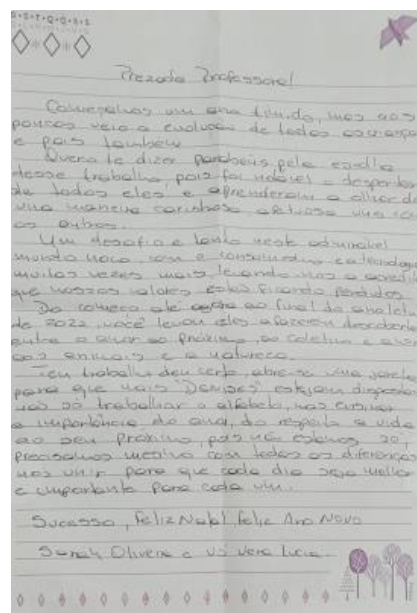 D·S·T·Q·Q·S·S
Prezada Professora!
Começamos um ano tímido, mas aos
poucos veio a evolução de todos
e pais também
Queria te dizer parabéns pela
desse trabalho, pois foi o despertar
de todos eles, e aprenderam a olhar de
uma maneira carinhosa afetuosa uns com
os outros.
Um desafio e tanto neste admirável
mundo novo, com o consumismo e a tecnologia
muitas vezes mais levando-nos a acreditar
que nossos valores estão ficando perdidos.
Do começo até agora ao final do ano letivo
de 2022, você levou eles a fazerem descobertas
entre o amor ao próximo, ao coletivo e amor
aos animais e a natureza.
Teu trabalho deu certo, abre-se uma janela
para que mais "Denises" estejam dispostas
não só trabalhar o alfabeto, mas ensinar
a importância do amor, do respeito a vida
ao seu próximo, pois não estamos só,
precisamos mesmo com todas as diferenças
nos unir para que cada dia seja melhor
e importante para cada um.
Sucesso, Feliz Natal, Feliz Ano Novo
Sarah Oliveira e vó Vera Lucia.